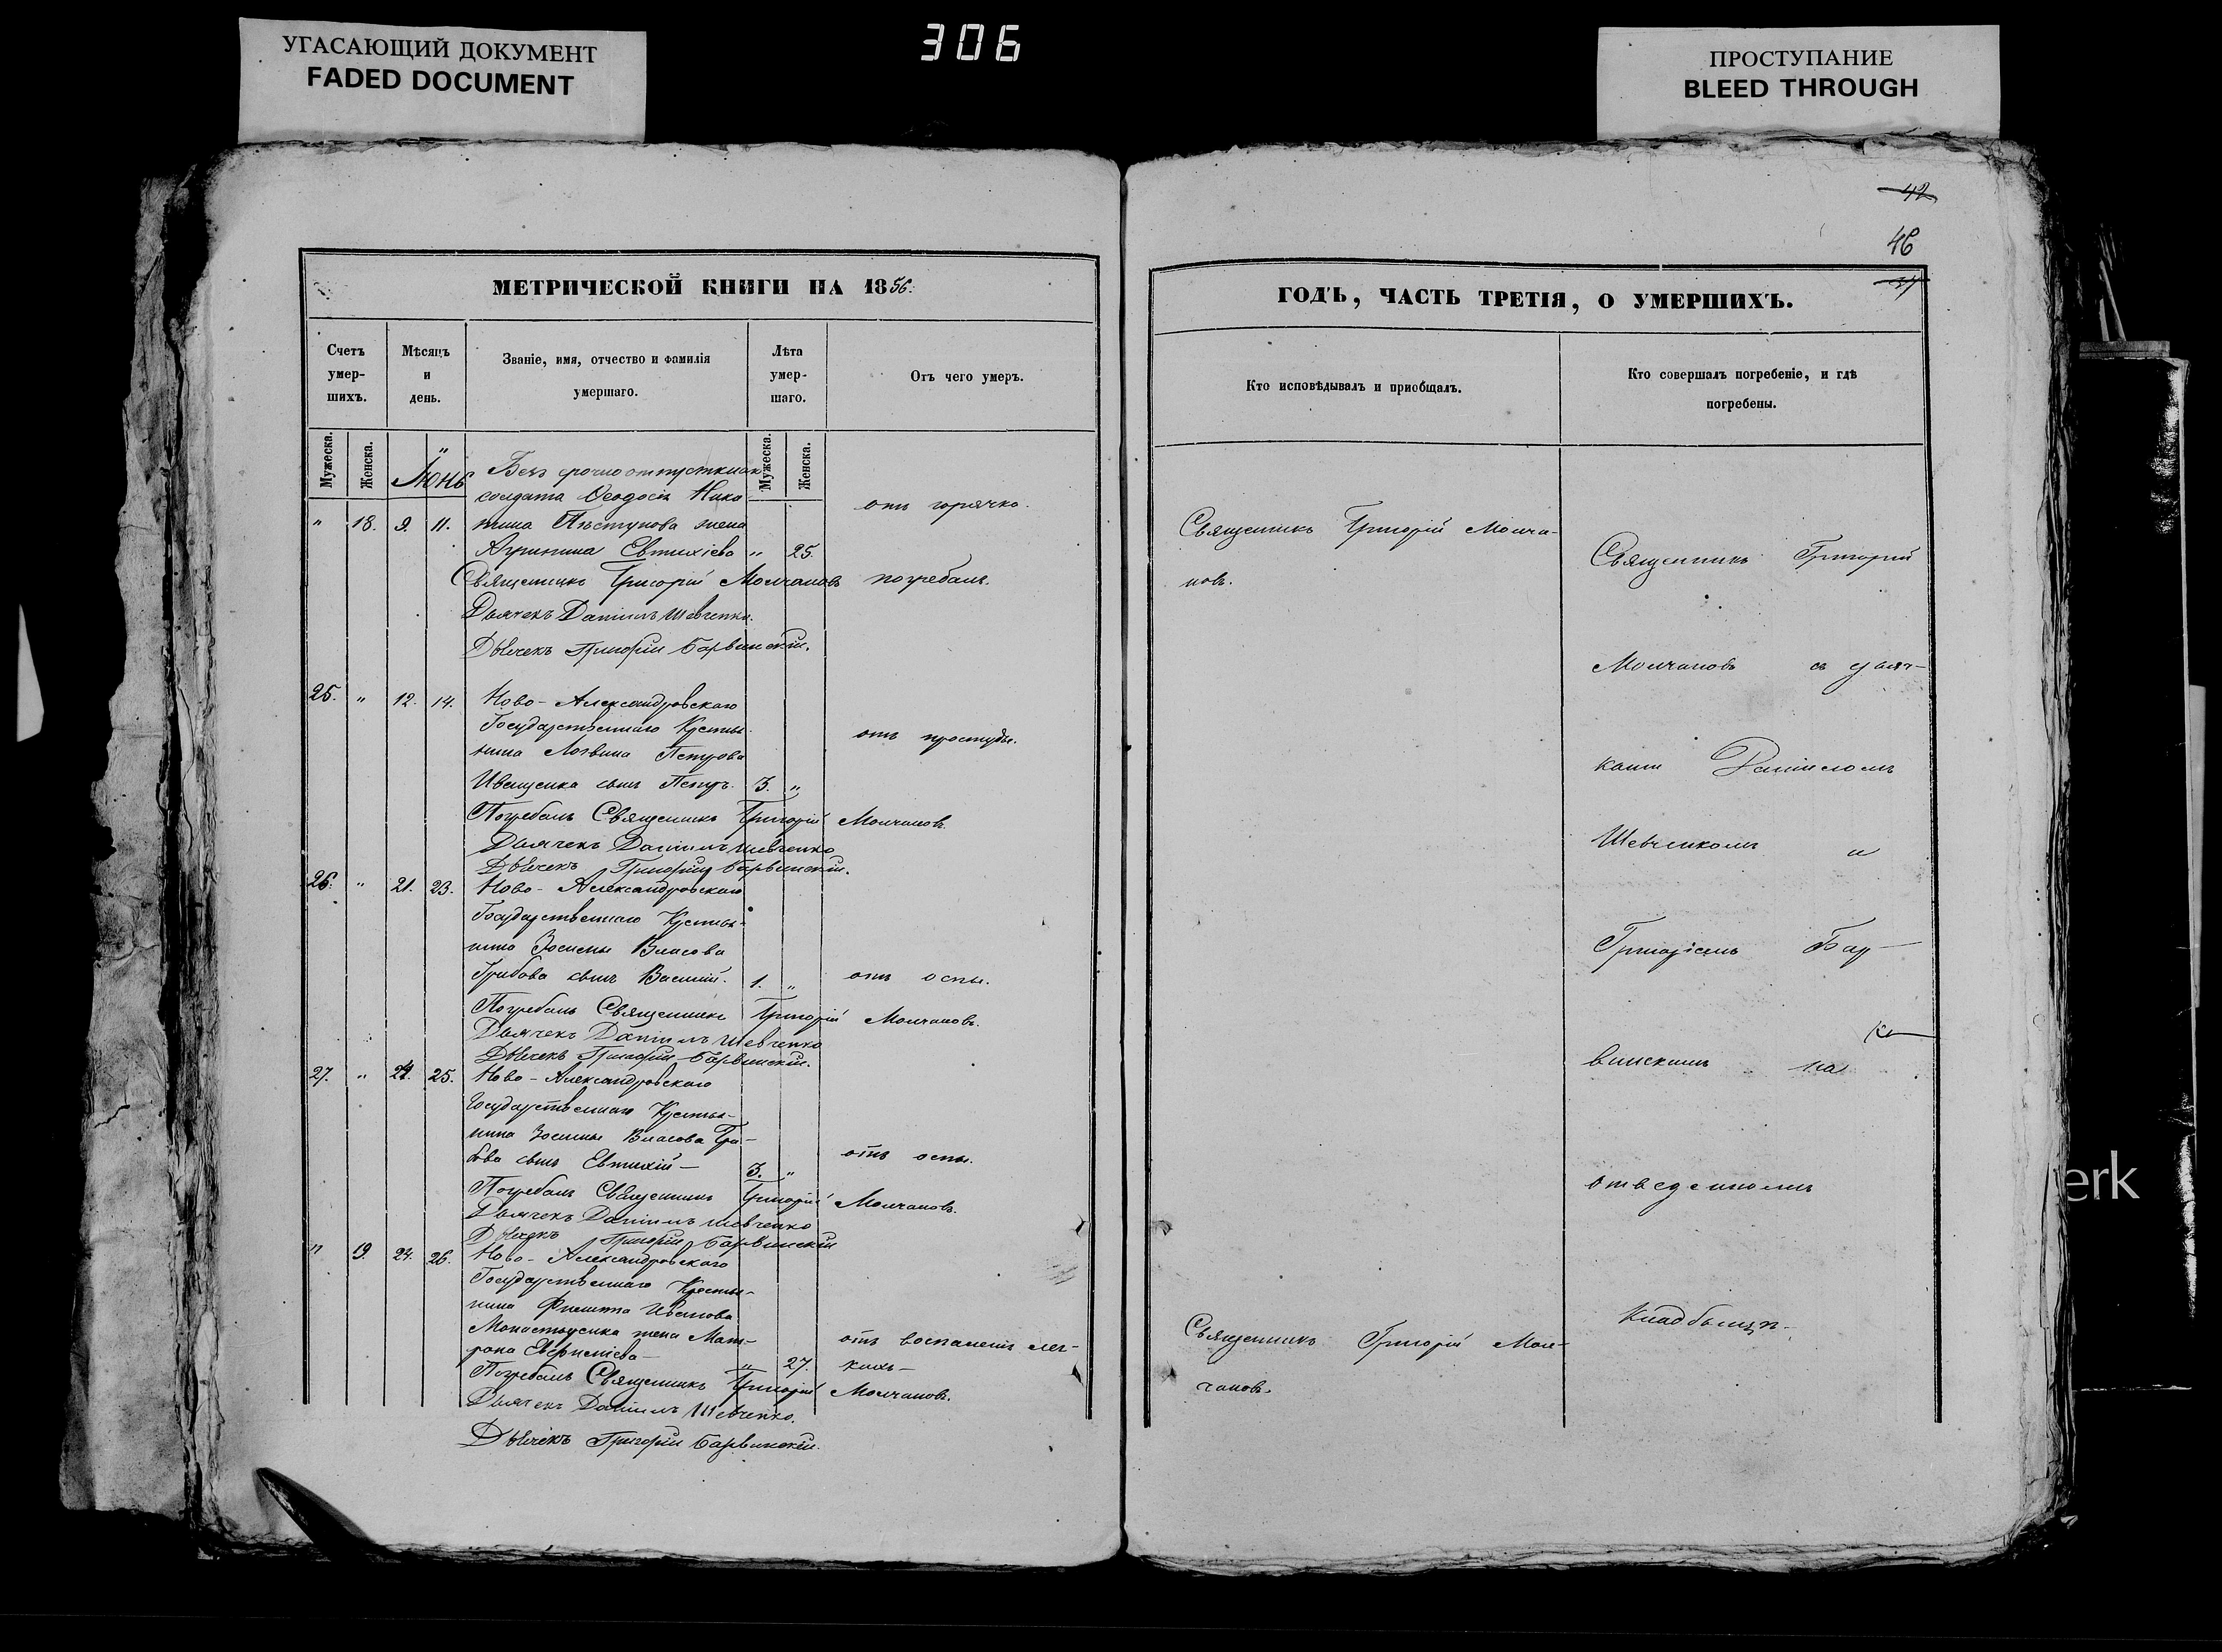 УГАСАЮЩИЙ ДОКУМЕНТ
FADED DOCUMENT
306
ПРОСТУПАНИЕ
BLEED THROUGH
МЕТРИЧЕСКОЙ КНИГИ НА 1856.
Счетъ умер-шихъ.
Мѣсяцъ и день.
Званіе, имя, отчество и фамилія умершаго.
Лѣта умер-шаго.
Отъ чего умеръ.
Мужеска.
Женска.
Мужеска.
Женска.
Іюнь
Безсрочноотпускнаго
солдата Ѳеодосія Ники
" 18. 9. 11. тина жена
Агрипина Евтихіева " 25. отъ горячки.
Священникъ Григорій Молчановъ погребалъ.
Дьячекъ Даніилъ Шевченко.
Дьячекъ Григорій Барвинскій.
25. " 12. 14. Ново-Александровскаго
Государственнаго Крестья
нина Логвина Петрова
отъ простуды.
Иващенка сынъ Петръ. 3. "
Погребалъ Священникъ Григорій Молчановъ.
Дьячекъ Даніилъ Шевченко
Дьячекъ Григорій Барвинскій.
26. " 21. 23. Ново-Александровскаго
Государственнаго Крестья-
нина Зосимы Власова
Грибова сынъ Василій. 1. " отъ оспы.
Погребалъ Священникъ Григорій Молчановъ.
Дьячекъ Даніилъ Шевченко
Дьячекъ Григорій Барвинскій.
27. " 24. 25. Ново-Александровскаго
Государственнаго Крестья-
нина Зосимы Власова Гри-
бова сынъ Евтихій- 3. " отъ оспы.
Погребалъ Священникъ Григорій Молчановъ.
Дьячекъ Даніилъ Шевченко
Дьячекъ Григорій Барвинскій
" 19 24. 26. Ново-Александровскаго
Государственнаго Крестья-
нина Филиппа Иванова
жена Мат-
рона " 27. отъ воспаленія лег-
кихъ-
Погребалъ Священникъ Григорій Молчановъ.
Дьячекъ Даніилъ Шевченко.
Дьячекъ Григорій Барвинскій.
42
46
ГОДЪ, ЧАСТЬ ТРЕТІЯ, О УМЕРШИХЪ.
Кто исповѣдывалъ и приобщалъ.
Кто совершалъ погребеніе, и гдѣ погребены.
Священникъ Григорій Молча-
новъ.
Священникъ Григорій
Молчановъ съ дьяч-
ками Даніиломъ
Шевченкомъ и
Григоріемъ Бар-
винскимъ на
отведенномъ
Кладбищѣ.
Священникъ Григорій Мол-
чановъ.
erk